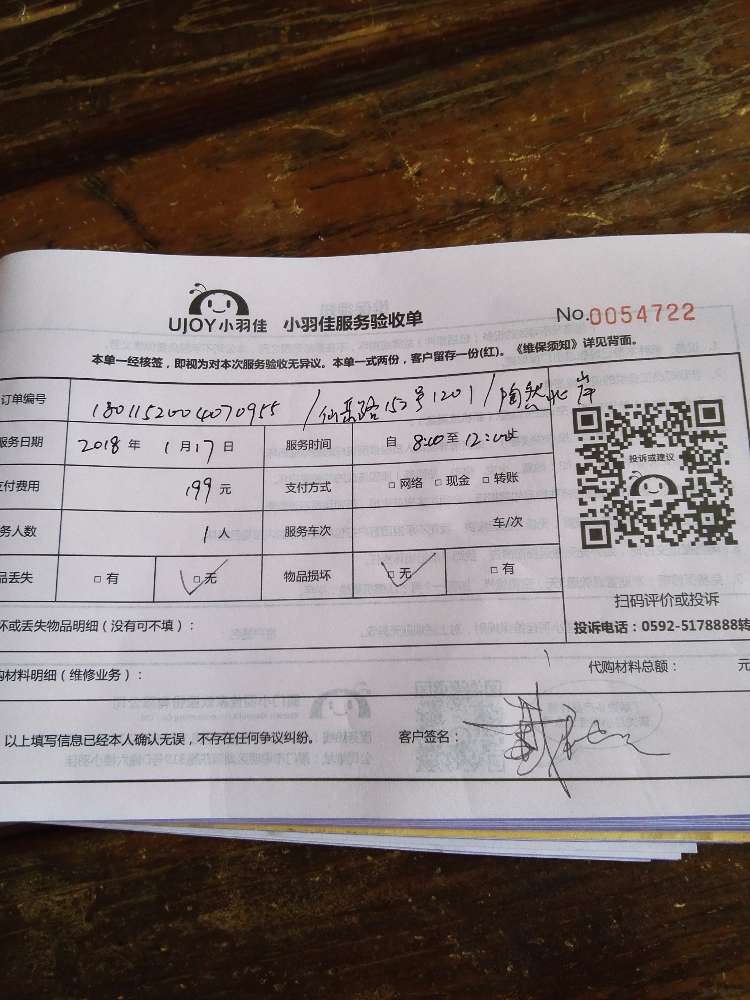 UJOY小羽佳 小羽佳服务验收单 No.0054722
本单一经核签，即视为对本次服务验收无异议。本单一式两份，客户留存一份(红)。《维保须知》详见背面。
订单编号 1801152004070955 /仙岳路152号1201/陶然北岸
服务日期 2018年 1月17日 服务时间 自 8:00至 12:00止
支付费用 199元 支付方式 □网络 □现金 □转账
务人数 1人 服务车次 车/次
品丢失 □有 □无 物品损坏 □无 □有
投诉或建议
扫码评价或投诉
坏或丢失物品明细（没有可不填）： 投诉电话：0592-5178888转
购材料明细（维修业务）： 代购材料总额： 元
以上填写信息已经本人确认无误，不存在任何争议纠纷。 客户签名：